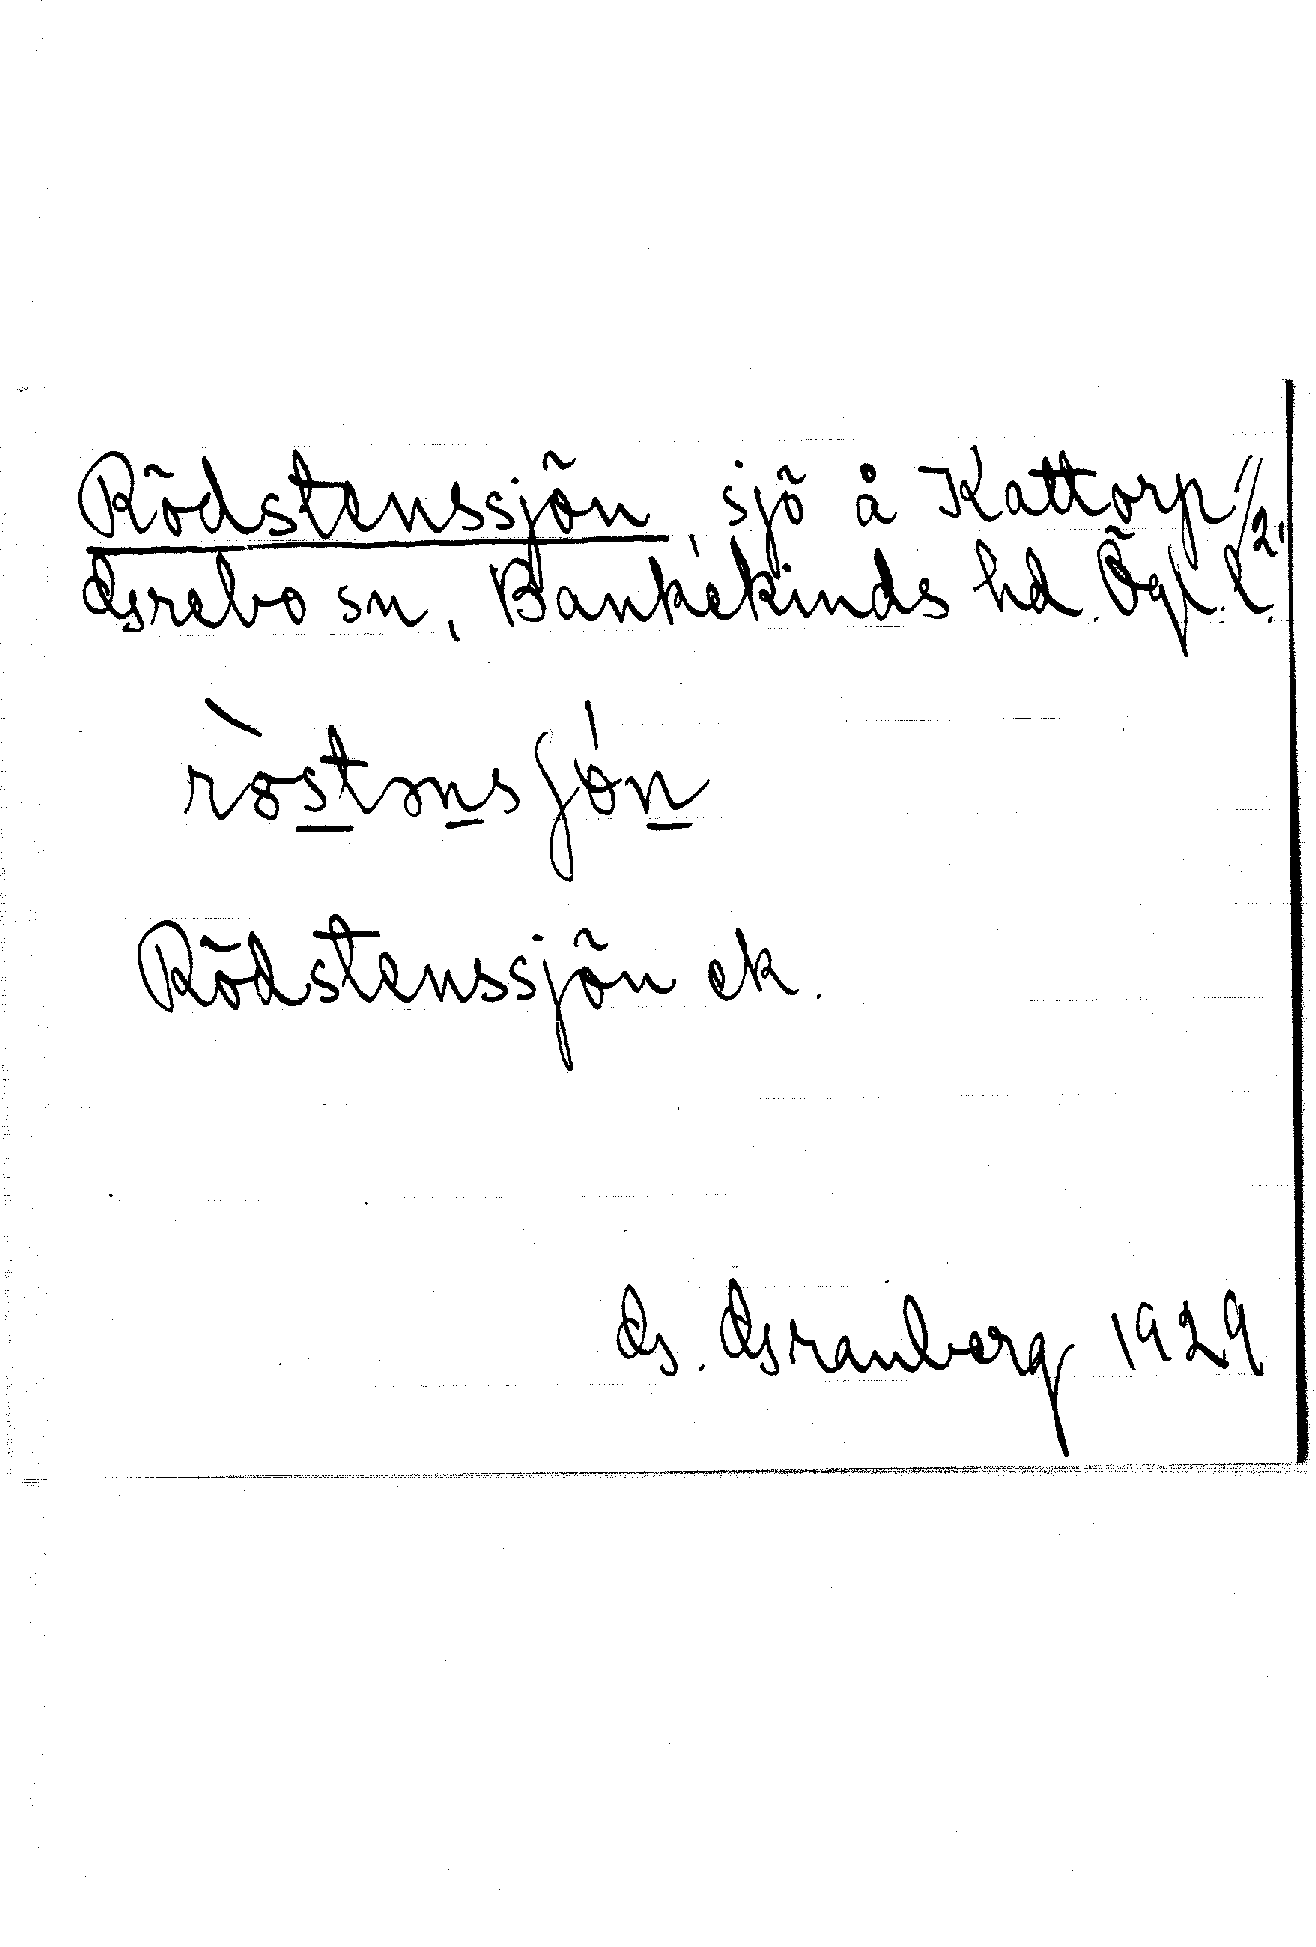 Rödstenssjön, sjö å Kattorp 1/2.
Grebo sn, Bankekinds hd. Ögl. l.
ròstənsʃǿn
Rödstenssjön ek.
G. Granberg 1929